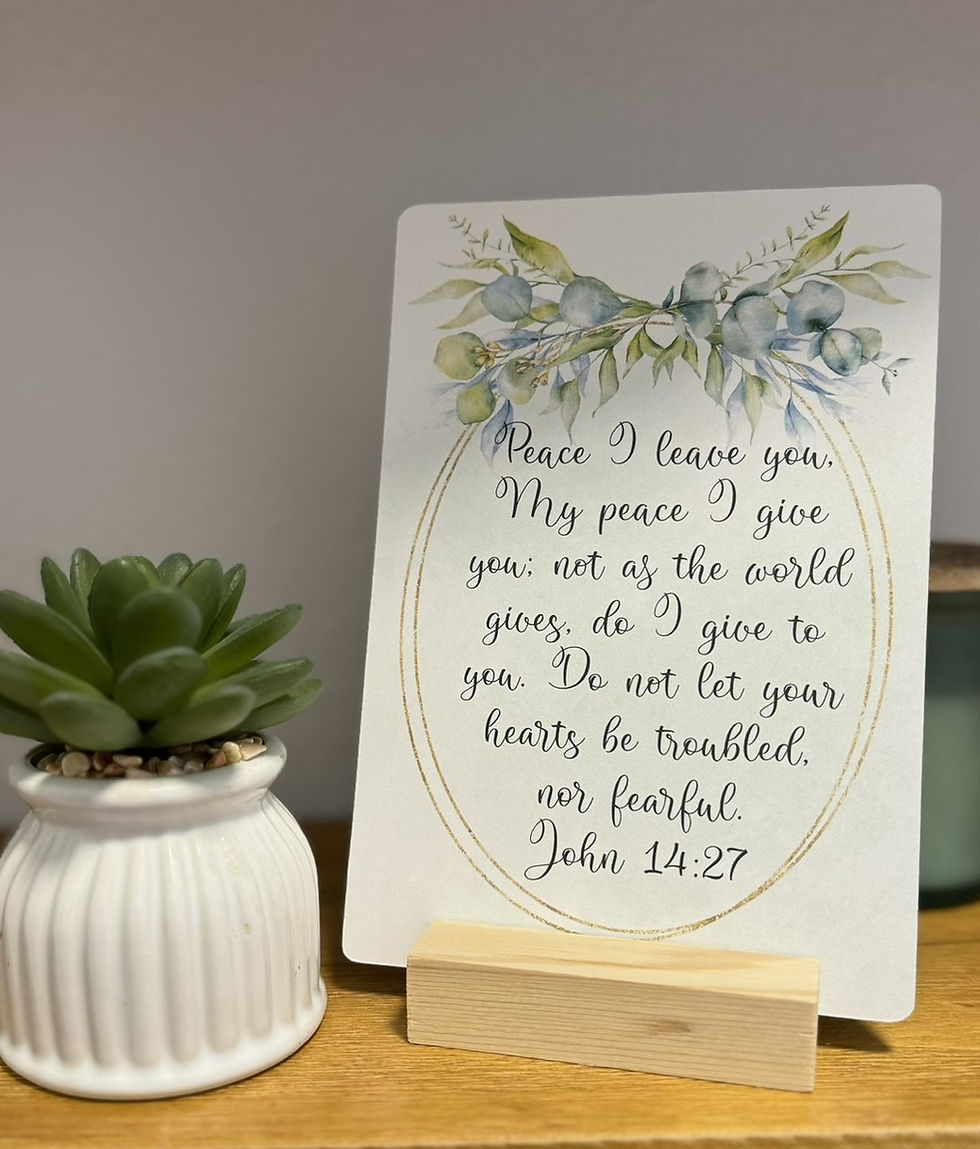 Peace I leave you,
My peace I give
you; not as the world
gives, do I give to
you. Do not let your
hearts be troubled,
nor fearful.
John 14:27